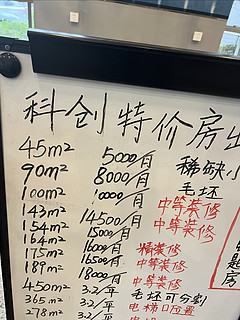 科创特价房出
45m² 5000/月 稀缺小
90m² 8000/月 毛坯
100m² 10000/月 中等装修
143m² 14500/月 中等装修
154m² 15000/月
164m² 16000/月 精装修
175m² 16500/月 中等装修
189m² 18000/月 中等装修
450m² 3.2/平 毛坯可分割
365m² 3.2/平 电梯口位置
278m² 3.2/平